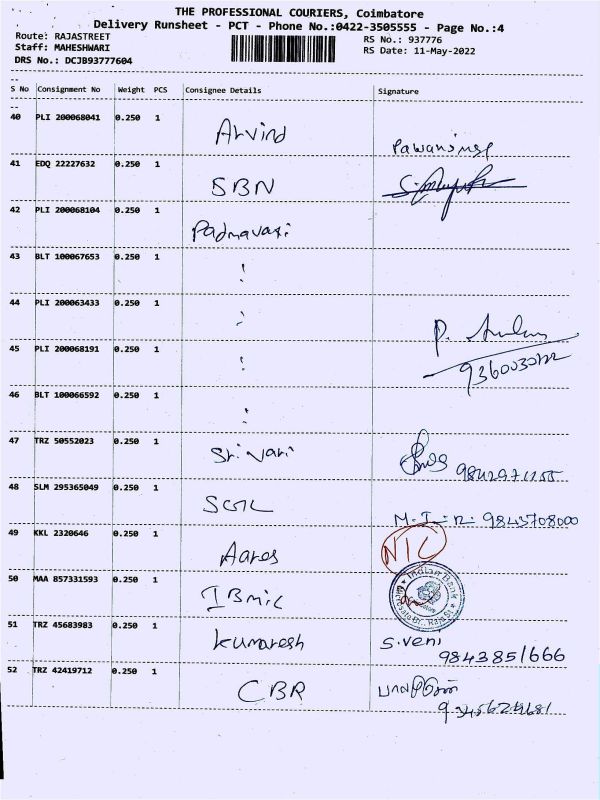 THE PROFESSIONAL COURIERS, Coimbatore
Delivery Runsheet - PCT - Phone No.:0422-3505555 - Page No.:4
Route: RAJASTREET RS No.: 937776
Staff: MAHESHWARI RS Date: 11-May-2022
DRS No.: DCJB93777604
S No Consignment No Weight PCS Consignee Details Signature
40 PLI 200068041 0.250 1 Arvind Pawansingh
41 EDQ 22227632 0.250 1 SBN
42 PLI 200068104 0.250 1 Padmavati
43 BLT 100067653 0.250 1
44 PLI 200063433 0.250 1
45 PLI 200068191 0.250 1
9360030122
46 BLT 100066592 0.250 1
47 TRZ 50552023 0.250 1 Sri Vari
48 SLM 295365049 0.250 1 9843708000
49 KKL 2320646 0.250 1 Aares NIC
50 MAA 857331593 0.250 1 Indian Bank
51 TRZ 45683983 0.250 1 Kumaresh S.Veni
9843851666
52 TRZ 42419712 0.250 1 CBR